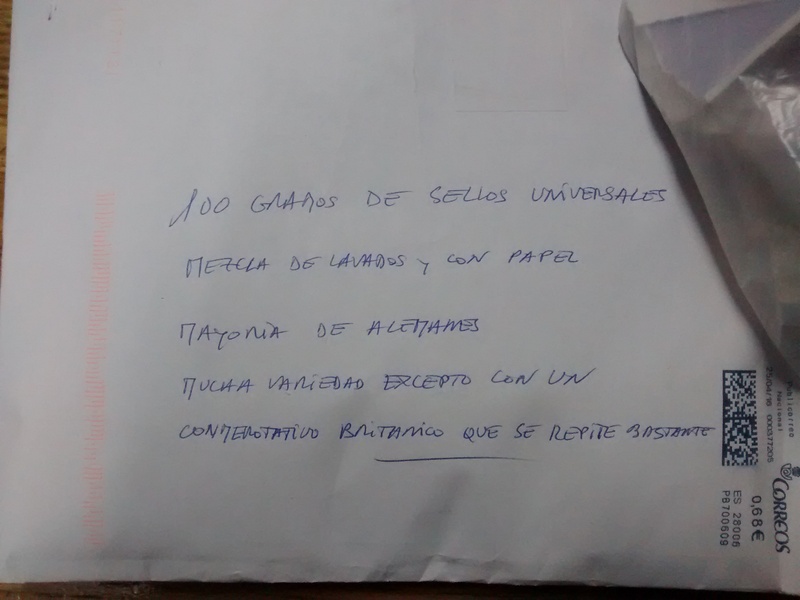 100 GRAMOS DE SELLOS UNIVERSALES
MEZCLA DE LAVADOS y CON PAPEL
MAyORIA DE ALEMANES
MUCHA VARIEDAD EXCEPTO CON UN
CONMEROTATIVO BRITANICO QUE SE REPITE BASTANTE
Publicorreo
Nacional
25/04/16 000377205
CORREOS
0,68€
ES 28006
PB700609